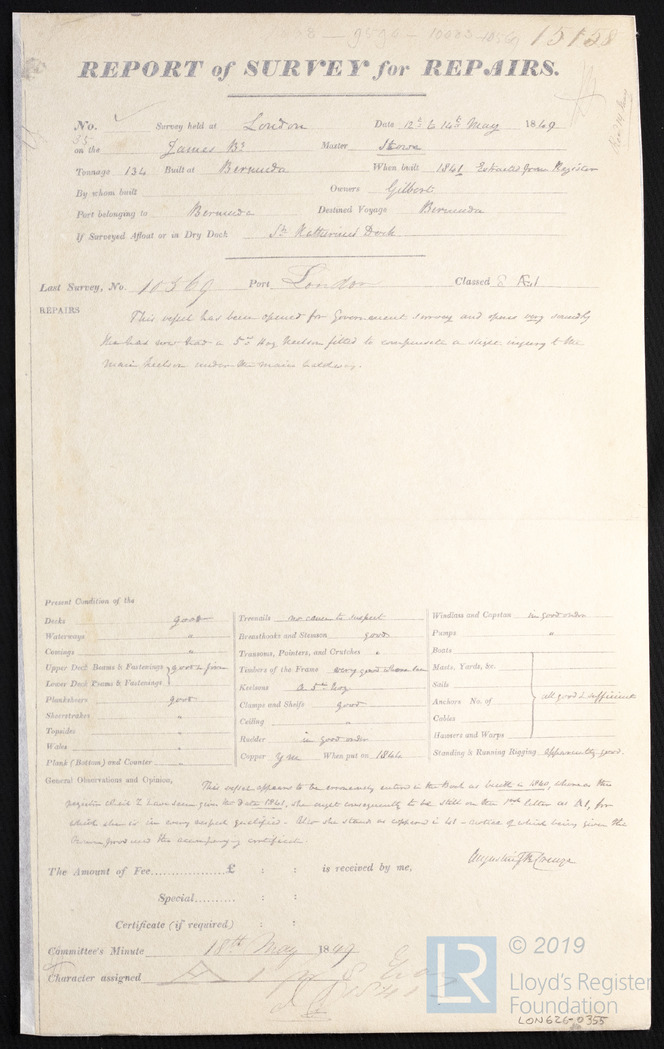 15158
REPORT of SURVEY for REPAIRS.
No. 35 Survey held at London Date 12th & 14th May 1849
on the James Bk Master Stowe
Tonnage 134 Built at Bermuda When built 1841 Extracted from Register
By whom built Owners Gilbert
Port belonging to Bermuda Destined Voyage Bermuda
If Surveyed Afloat or in Dry Dock St Katharines Dock
Last Survey, No. 10569 Port London Classed 8 A1
REPAIRS
This vessel has been opened for Government survey and opens very soundly
She has now had a 5th Hog Keelson fitted to compensate a slight injury to the
Main Keelson under the main hatchway.
Present Condition of the
Decks good
Waterways "
Comings "
Upper Deck Beams & Fastenings good & firm
Lower Deck Beams & Fastenings
Planksheers good
Sheerstrakes "
Topsides "
Wales "
Plank (Bottom) and Counter "
Treenails no cause to suspect
Breasthooks and Stemson good
Transoms, Pointers, and Crutches "
Timbers of the Frame very good where seen
Keelsons a 5th Hog
Clamps and Shelfs good
Ceiling "
Rudder in good order
Copper YM When put on 1844
Windlass and Capstan in good order
Pumps "
Boats
Masts, Yards, &c.
Sails
Anchors No. of all good & sufficient
Cables
Hawsers and Warps
Standing & Running Rigging apparently good.
General Observations and Opinion, This vessel appears to be erroneously entered in the Book as built in 1840, whereas the
Register which I have seen gives the date 1841, she ought consequently to be still on the 1st letter as A1, for
which she is in every respect qualified. Also she stands as approved in 41 - notice of which being given the
accompanying certificate
Augustin F B Creuze
The Amount of Fee £ : : is received by me,
Special : :
Certificate (if required) : :
Committee's Minute 18th May 1849
Character assigned A 1 for 8
1841
© 2019
LR
Lloyd's Register
Foundation
LON626-0355